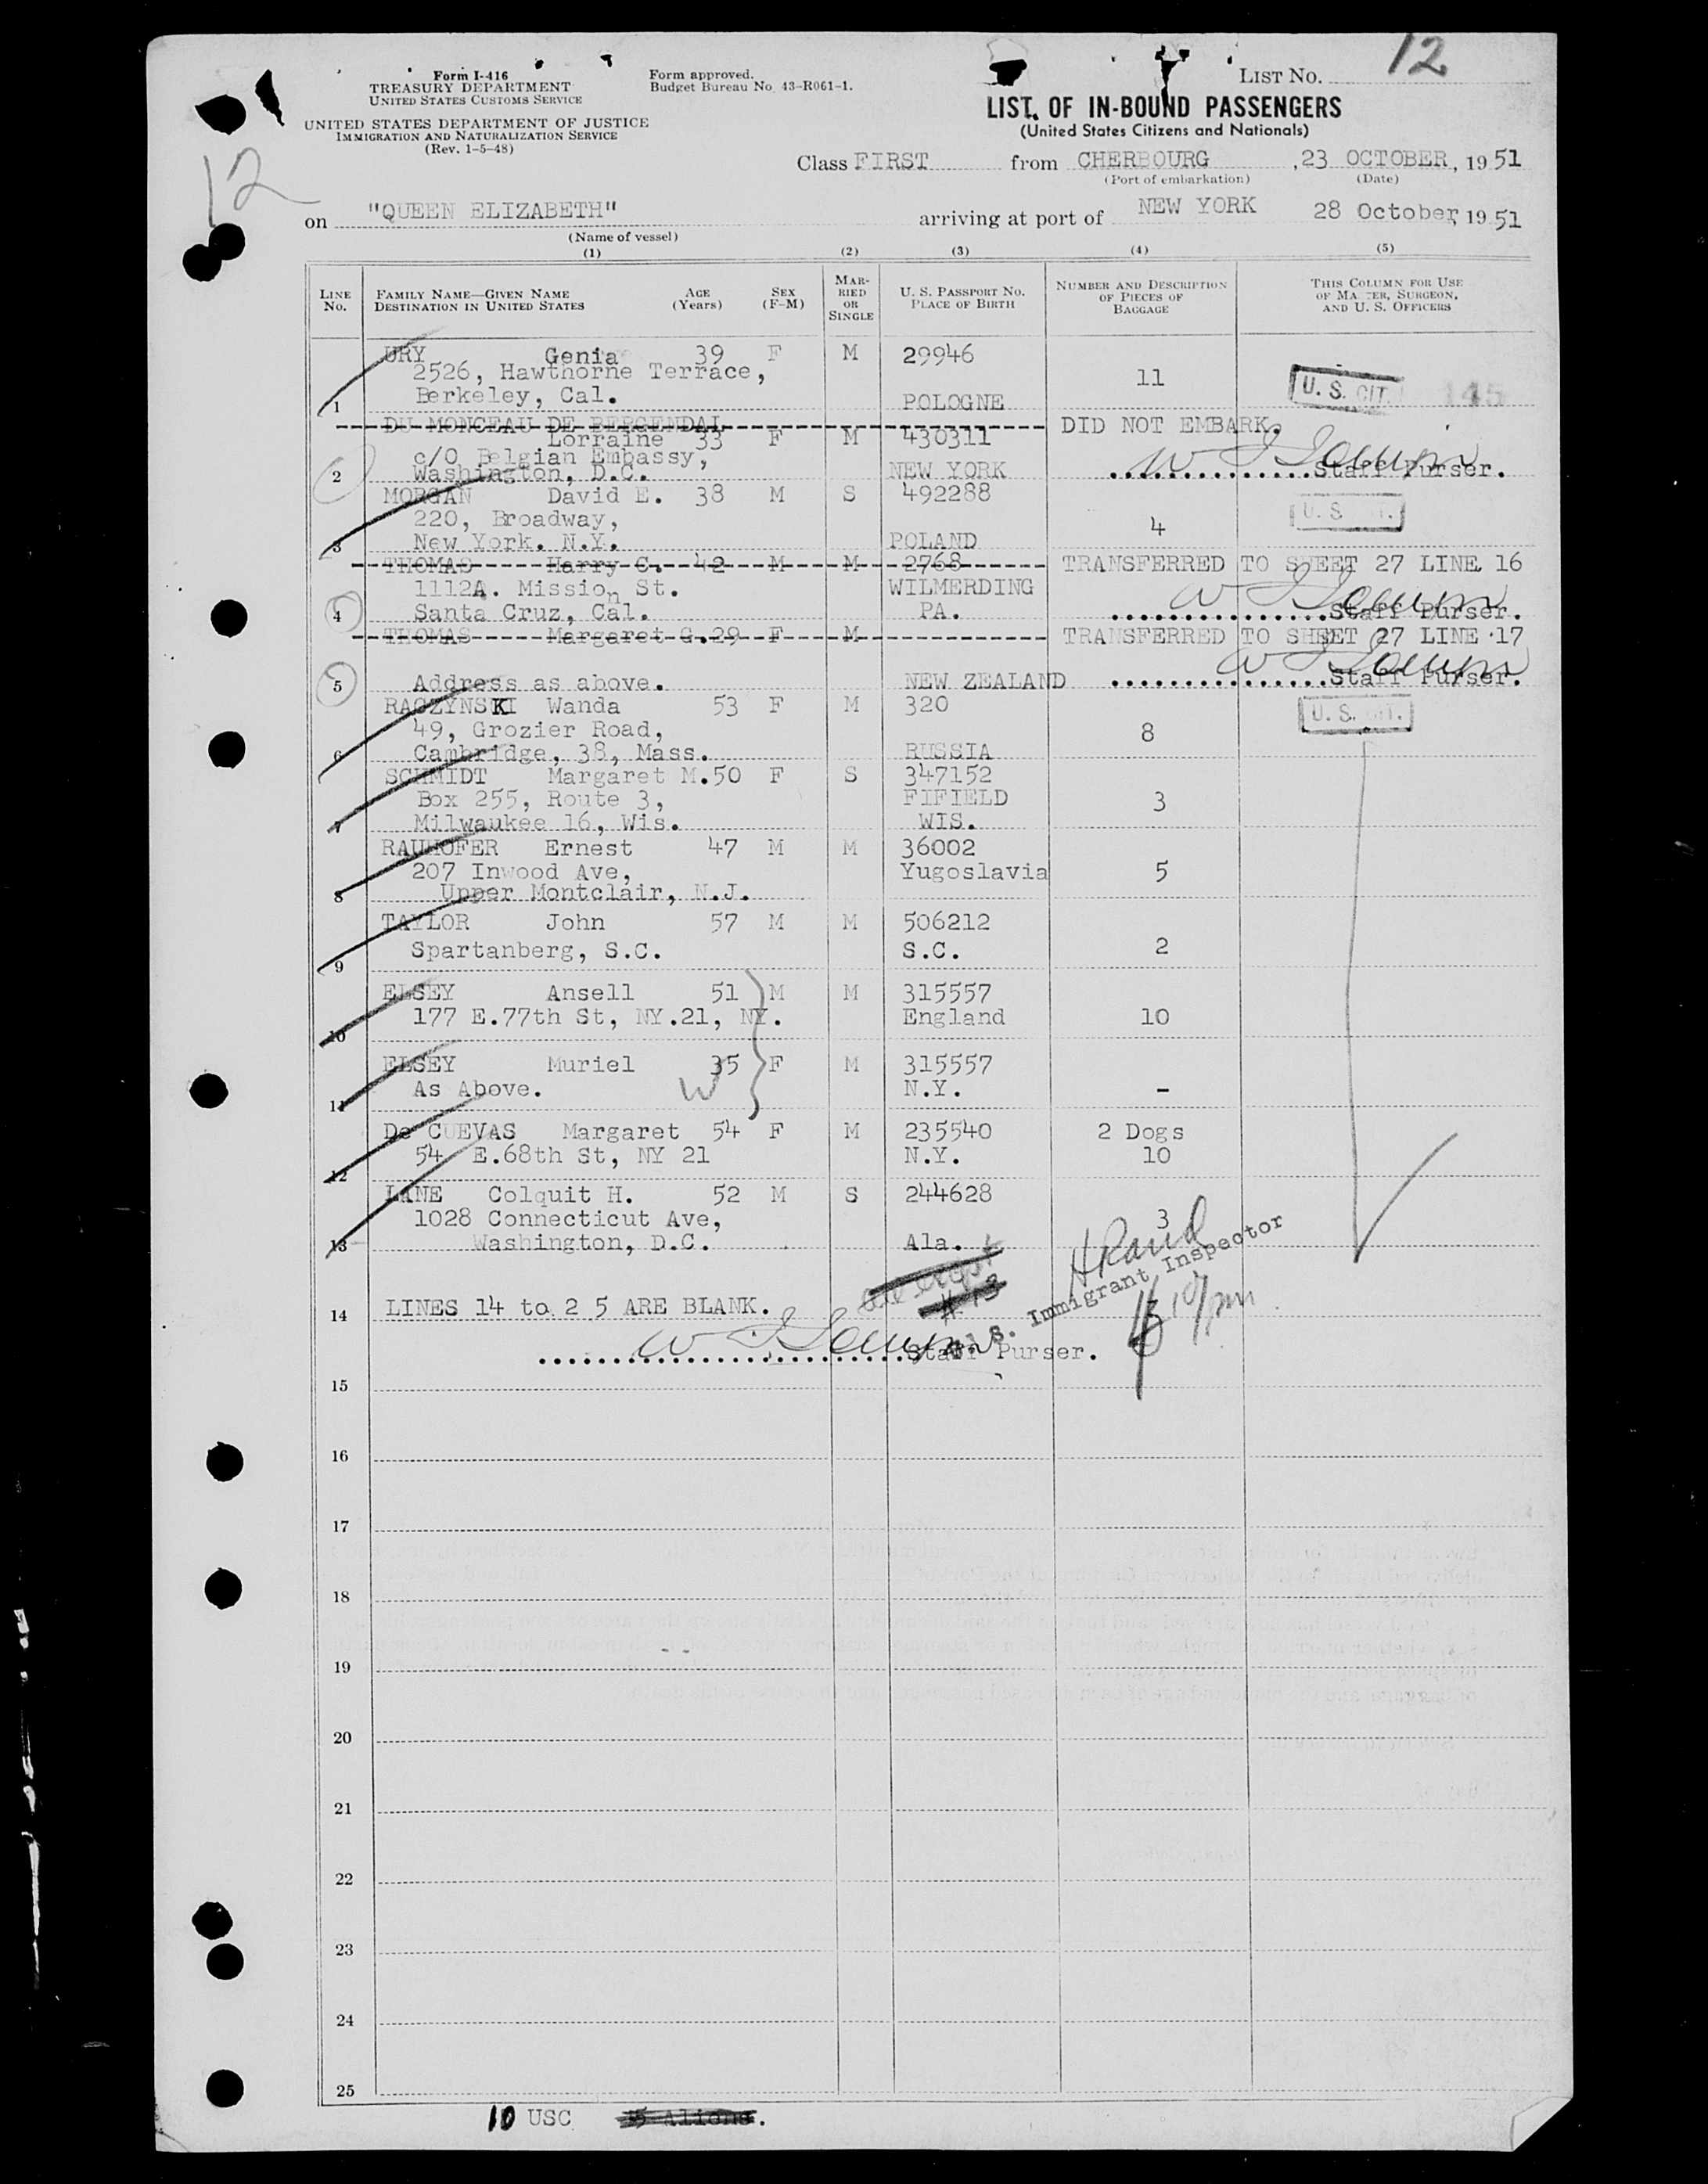 12
Form I-416
TREASURY DEPARTMENT
UNITED STATES CUSTOMS SERVICE
UNITED STATES DEPARTMENT OF JUSTICE
IMMIGRATION AND NATURALIZATION SERVICE
(Rev. 1-5-48)
Form approved.
Budget Bureau No. 43-R061-1.
LIST NO. 12
LIST OF IN-BOUND PASSENGERS
(United States Citizens and Nationals)
Class FIRST from CHERBOURG, 23 OCTOBER, 1951
(Port of embarkation) (Date)
on "QUEEN ELIZABETH" arriving at port of NEW YORK 28 October, 1951
(Name of vessel)
(1) (2) (3) (4) (5)
LINE NO. FAMILY NAME—GIVEN NAME DESTINATION IN UNITED STATES AGE (Years) SEX (F-M) MARRIED OR SINGLE U. S. PASSPORT NO. PLACE OF BIRTH NUMBER AND DESCRIPTION OF PIECES OF BAGGAGE THIS COLUMN FOR USE OF MASTER, SURGEON, AND U. S. OFFICERS
URY Genia 39 F M 29946
2526, Hawthorne Terrace, 11 U. S. CIT. 145
1 Berkeley, Cal. POLOGNE
DU MONCEAU DE BERGENDAL DID NOT EMBARK.
Lorraine 33 F M 430311
c/O Belgian Embassy,
2 Washington, D.C. NEW YORK Staff Purser.
MORGAN David E. 38 M S 492288
220, Broadway, 4 U. S. CIT.
3 New York. N.Y. POLAND
THOMAS Harry C. 42 M M 2768 TRANSFERRED TO SHEET 27 LINE 16
1112A. Mission St. WILMERDING
4 Santa Cruz, Cal. PA. Staff Purser.
THOMAS Margaret G. 29 F M TRANSFERRED TO SHEET 27 LINE 17
5 Address as above. NEW ZEALAND Staff Purser.
RACZYNSKI Wanda 53 F M 320 U. S. CIT.
49, Grozier Road, 8
6 Cambridge, 38, Mass. RUSSIA
SCHMIDT Margaret M. 50 F S 347152
Box 255, Route 3, FIFIELD 3
7 Milwaukee 16, Wis. WIS.
RAUHOFER Ernest 47 M M 36002
207 Inwood Ave, Yugoslavia 5
8 Upper Montclair, N.J.
TAYLOR John 57 M M 506212
Spartanberg, S.C. S.C. 2
9
ELSEY Ansell 51 M M 315557
177 E.77th St, NY.21, NY. England 10
10
ELSEY Muriel 35 F M 315557
As Above. W N.Y. -
11
De CUEVAS Margaret 54 F M 235540 2 Dogs
54 E.68th St, NY 21 N.Y. 10
12
LANE Colquit H. 52 M S 244628
1028 Connecticut Ave, 3
13 Washington, D.C. Ala.
#13
U. S. Immigrant Inspector
14 LINES 14 to 25 ARE BLANK.
Staff Purser.
15
16
17
18
19
20
21
22
23
24
25
10 USC Aliens.